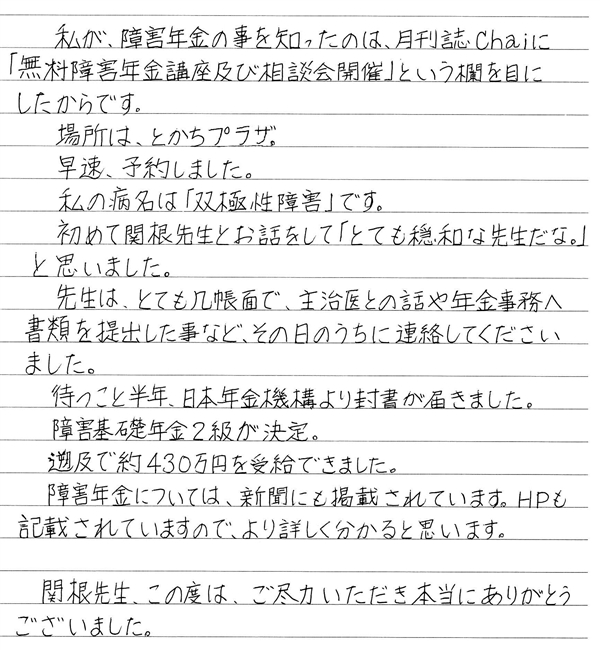 私が、障害年金の事を知ったのは、月刊誌Chaiに
「無料障害年金講座及び相談会開催」という欄を目に
したからです。
場所は、とかちプラザ。
早速、予約しました。
私の病名は「双極性障害」です。
初めて関根先生とお話をして「とても穏和な先生だな。」
と思いました。
先生は、とても几帳面で、主治医との話や年金事務へ
書類を提出した事など、その日のうちに連絡してください
ました。
待つこと半年、日本年金機構より封書が届きました。
障害基礎年金2級が決定。
遡及で約430万円を受給できました。
障害年金については、新聞にも掲載されています。HPも
記載されていますので、より詳しく分かると思います。
関根先生、この度は、ご尽力いただき本当にありがとう
ございました。